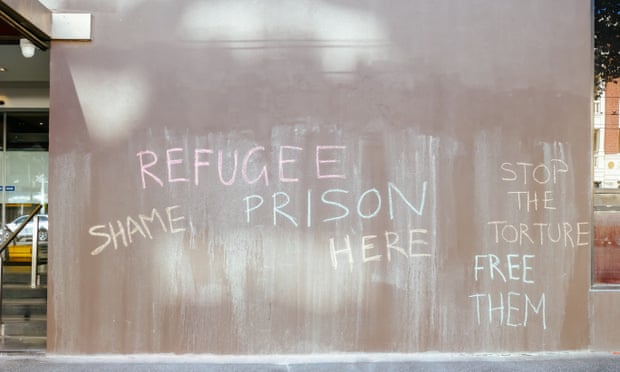 REFUGEE
PRISON
HERE
SHAME
STOP
THE
TORTURE
FREE
THEM